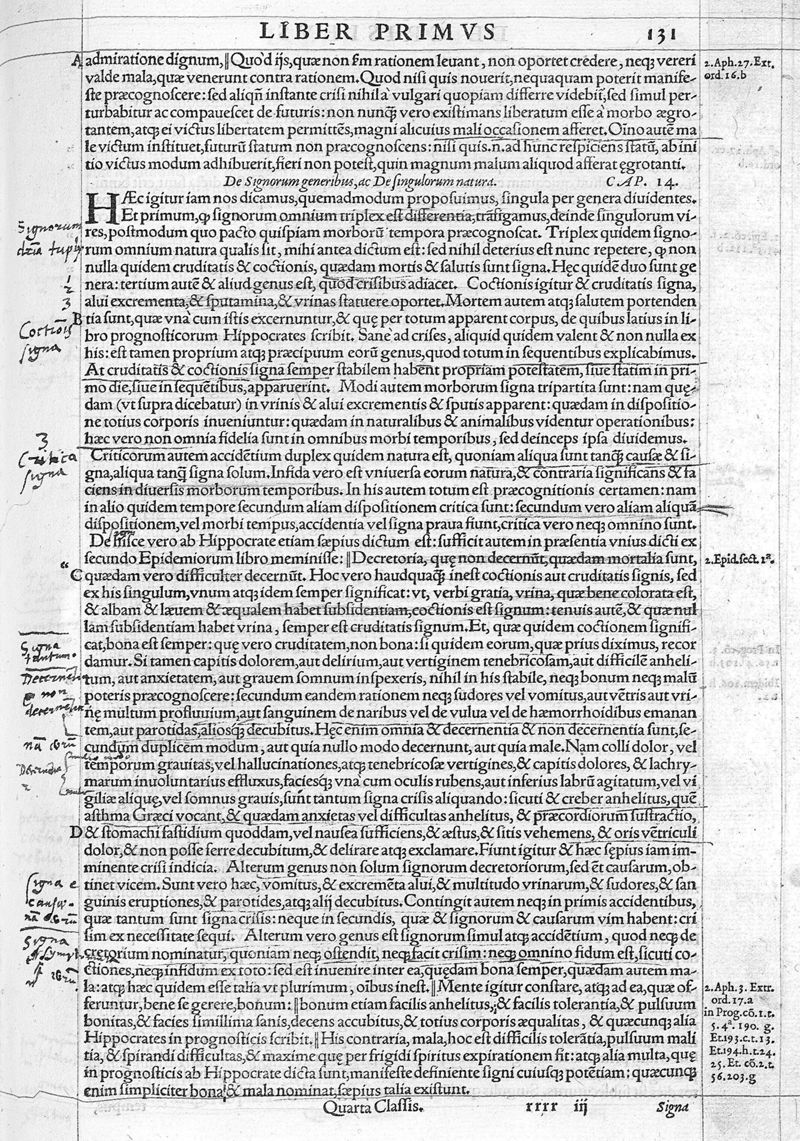 LIBER PRIMVS 131
A admiratione dignum, || Quòd ijs, quæ non ſm rationem leuant, non oportet credere, neqꝫ vereri
2. Aph. 27. Ext.
ord. 16. b
valde mala, quæ venerunt contra rationem. Quod niſi quis nouerit, nequaquam poterit manife-
ſte præcognoſcere: ſed aliqñ inſtante criſi nihil à vulgari quopiam differre videbit̃, ſed ſimul per-
turbabitur ac compaueſcet de futuris: non nunq̃ vero exiſtimans liberatum eſſe à morbo ægro-
tantem, atqꝫ ei victus libertatem permittẽs, magni alicuius mali occaſionem afferet. Oĩno autẽ ma
le victum inſtituet, futurũ ſtatum non præcognoſcens: niſi quis .n. ad hunc reſpiciens ſtatũ, ab ini
tio victus modum adhibuerit, fieri non poteſt, quin magnum malum aliquod afferat ęgrotanti.
De Signorum generibus, ac De ſingulorum natura. CAP. 14.
HÆc igitur iam nos dicamus, quemadmodum propoſuimus, ſingula per genera diuidentes.
Et primum, ꝙ ſignorum omnium triplex eſt differentia, trãſigamus, deinde ſingulorum vi-
res, poſtmodum quo pacto quiſpiam morborũ tempora præcognoſcat. Triplex quidem ſigno-
rum omnium natura qualis ſit, mihi antea dictum eſt: ſed nihil deterius eſt nunc repetere, ꝙ non
nulla quidem cruditatis & coctionis, quædam mortis & ſalutis ſunt ſigna. Hęc quidẽ duo ſunt ge
nera: tertium autẽ & aliud genus eſt, quod criſibus adiacet. Coctionis igitur & cruditatis ſigna,
alui excrementa, & ſputamina, & vrinas ſtatuere oportet. Mortem autem atqꝫ ſalutem portenden
B tia ſunt, quæ vnà cum iſtis excernuntur, & quę per totum apparent corpus, de quibus latius in li-
bro prognoſticorum Hippocrates ſcribit. Sanè ad criſes, aliquid quidem valent & non nulla ex
his: eſt tamen proprium atqꝫ præcipuum eorũ genus, quod totum in ſequentibus explicabimus.
At cruditatis & coctionis ſigna ſemper ſtabilem habent propriam poteſtatem, ſiue ſtatim in pri-
mo die, ſiue in ſequẽtibus, apparuerint. Modi autem morborum ſigna tripartita ſunt: nam quę-
dam (vt ſupra dicebatur) in vrinis & alui excrementis & ſputis apparent: quædam in diſpoſitio-
ne totius corporis inueniuntur: quædam in naturalibus & animalibus videntur operationibus:
hæc vero non omnia fidelia ſunt in omnibus morbi temporibus, ſed deinceps ipſa diuidemus.
Criticorum autem accidẽtium duplex quidem natura eſt, quoniam aliqua ſunt tanq̃ cauſæ & ſi-
gna, aliqua tanq̃ ſigna ſolum. Infida vero eſt vniuerſa eorum natura, & contraria ſignificans & fa
ciens in diuerſis morborum temporibus. In his autem totum eſt præcognitionis certamen: nam
in alio quidem tempore ſecundum aliam diſpoſitionem critica ſunt: ſecundum vero aliam aliquã
diſpoſitionem, vel morbi tempus, accidentia vel ſigna praua fiunt, critica vero neqꝫ omnino ſunt.
De hiſce vero ab Hippocrate etiam ſæpius dictum eſt: ſufficit autem in præſentia vnius dicti ex
ſecundo Epidemiorum libro meminiſſe: || Decretoria, quę non decernũt, quædam mortalia ſunt,
2. Epid. ſect. 1ª.
C quædam vero difficulter decernũt. Hoc vero haudquaq̃ ineſt coctionis aut cruditatis ſignis, ſed
ex his ſingulum, vnum atqꝫ idem ſemper ſignificat: vt, verbi gratia, vrina, quæ bene colorata eſt,
& albam & læuem & æqualem habet ſubſidentiam, coctionis eſt ſignum: tenuis autẽ, & quæ nul
lam ſubſidentiam habet vrina, ſemper eſt cruditatis ſignum. Et, quæ quidem coctionem ſignifi-
cat, bona eſt ſemper: quę vero cruditatem, non bona: ſi quidem eorum, quæ prius diximus, recor
damur. Si tamen capitis dolorem, aut delirium, aut vertiginem tenebricoſam, aut difficilẽ anheli-
tum, aut anxietatem, aut grauem ſomnum inſpexeris, nihil in his ſtabile, neqꝫ bonum neqꝫ malũ
poteris præcognoſcere: ſecundum eandem rationem neqꝫ ſudores vel vomitus, aut vẽtris aut vri-
nę multum profluuium, aut ſanguinem de naribus vel de vulua vel de hæmorrhoidibus emanan
tem, aut parotidas, alioſqꝫ decubitus. Hęc enim omnia & decernentia & non decernentia ſunt, ſe-
cundum duplicem modum, aut quia nullo modo decernunt, aut quia male. Nam colli dolor, vel
temporum grauitas, vel hallucinationes, atqꝫ tenebricoſæ vertigines, & capitis dolores, & lachry-
marum inuoluntarius effluxus, facieſqꝫ vnà cum oculis rubens, aut inferius labrũ agitatum, vel vi
giliæ aliquę, vel ſomnus grauis, ſunt tantum ſigna criſis aliquando: ſicuti & creber anhelitus, quẽ
aſthma Græci vocant, & quædam anxietas vel difficultas anhelitus, & præcordiorum ſuſtractio,
D & ſtomachi faſtidium quoddam, vel nauſea ſufficiens, & æſtus, & ſitis vehemens, & oris vẽtriculi
dolor, & non poſſe ferre decubitum, & delirare atqꝫ exclamare. Fiunt igitur & hæc ſępius iam im-
minente criſi indicia. Alterum genus non ſolum ſignorum decretoriorum, ſed ẽt cauſarum, ob-
tinet vicem. Sunt vero hæc, vomitus, & excremẽta alui, & multitudo vrinarum, & ſudores, & ſan
guinis eruptiones, & parotides, atqꝫ alij decubitus. Contingit autem neqꝫ in primis accidentibus,
quæ tantum ſunt ſigna criſis: neque in ſecundis, quæ & ſignorum & cauſarum vim habent: cri
ſim ex neceſſitate ſequi. Alterum vero genus eſt ſignorum ſimul atqꝫ accidẽtium, quod neqꝫ de
cretorium nominatur, quoniam neqꝫ oſtendit, neqꝫ facit criſim: neqꝫ omnino fidum eſt, ſicuti co-
ctiones, neqꝫ infidum ex toto: ſed eſt inuenire inter ea, quędam bona ſemper, quædam autem ma-
la: atqꝫ hæc quidem eſſe talia vt plurimum, oĩbus ineſt. || Mente igitur conſtare, atqꝫ ad ea, quæ of-
2. Aph. 3. Extr.
ord. 17. a
feruntur, bene ſe gerere, bonum: || bonum etiam facilis anhelitus, & facilis tolerantia, & pulſuum
in Prog. cõ. 1. t.
bonitas, & facies ſimillima ſanis, decens accubitus, & totius corporis æqualitas, & quæcunqꝫ alia
5. 4ª. 190. g.
Hippocrates in prognoſticis ſcribit. || His contraria, mala, hoc eſt difficilis tolerãtia, pulſuum mali
Et. 193. c. t. 13.
tia, & ſpirandi difficultas, & maxime quę per frigidi ſpiritus expirationem fit: atqꝫ alia multa, quę
Et. 194. h. t. 24.
in prognoſticis ab Hippocrate dicta ſunt, manifeſte definiente ſigni cuiuſqꝫ potẽtiam: quæcunqꝫ
25. Et. cõ. 2. t.
56. 203. g
enim ſimpliciter bona & mala nominat, ſæpius talia exiſtunt.
Quarta Claſſis. rrrr iij Signa
Signorum
1
2
3
Coctiõis
ſigna
3
Critica
ſigna
Signa
tantum
Signa